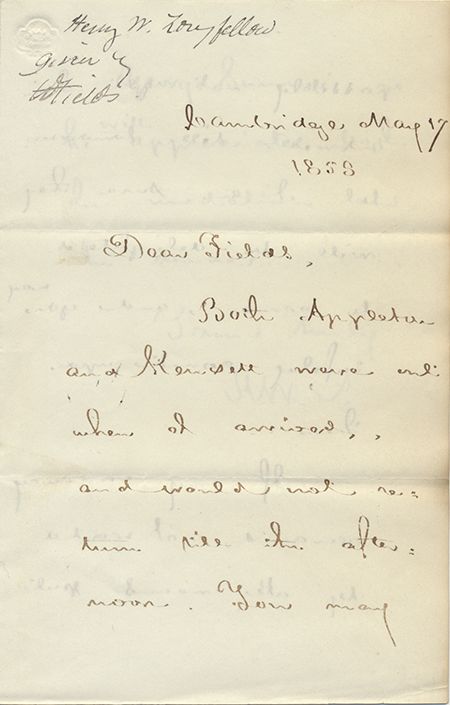 Henry W. Longfellow
given by
Fields
Cambridge May 17
1858
Dear Fields,
Both Appleton
and Kensett were out
when I arrived,
and would not re=
turn till the after=
noon. You may